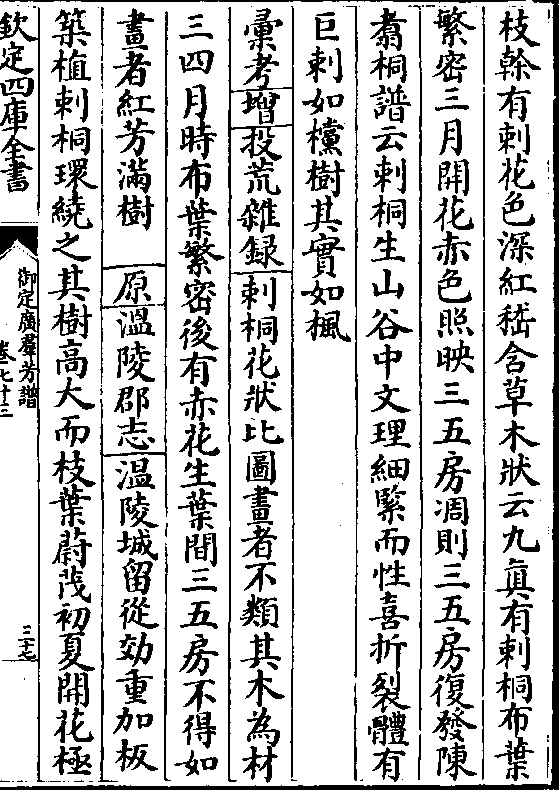 枝幹有刺花色深紅嵇含草木狀云九真有刺桐布葉
繁密三月開花赤色照映三五房凋則三五房復發陳
翥桐譜云刺桐生山谷中文理細緊而性喜折裂體有
巨刺如欓樹其實如楓
彙考增投荒雜録刺桐花狀比圖畫者不類其木為材
三四月時布葉繁密後有赤花生葉間三五房不得如
畫者紅芳滿樹 原溫陵郡志溫陵城留從効重加板
築植刺桐環繞之其樹高大而枝葉蔚茂初夏開花極
欽定四庫全書
御定廣羣芳譜
卷七十三
三十七